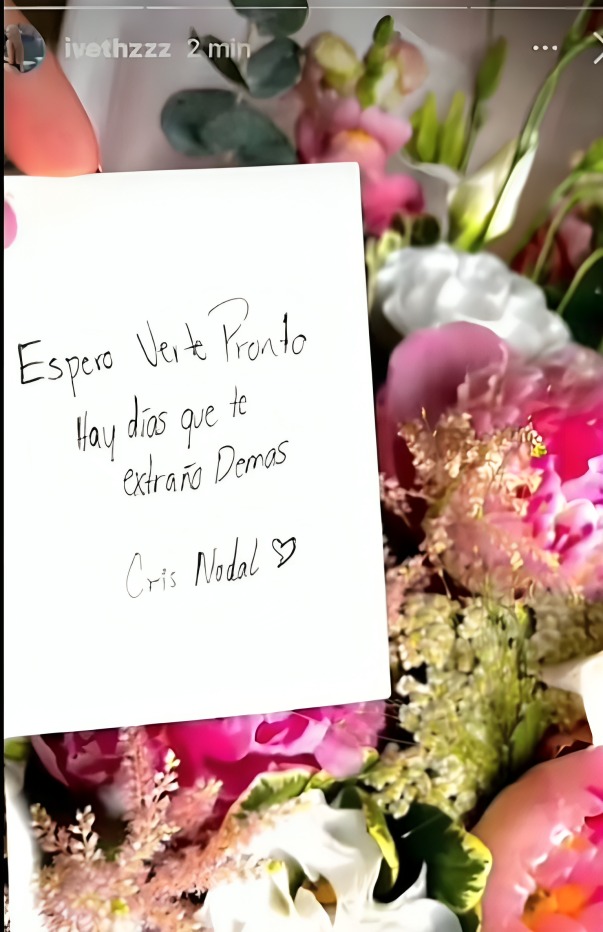 ivethzzz 2 min
Espero Verte Pronto
Hay días que te
extraño Demas
Cris Nodal ♡